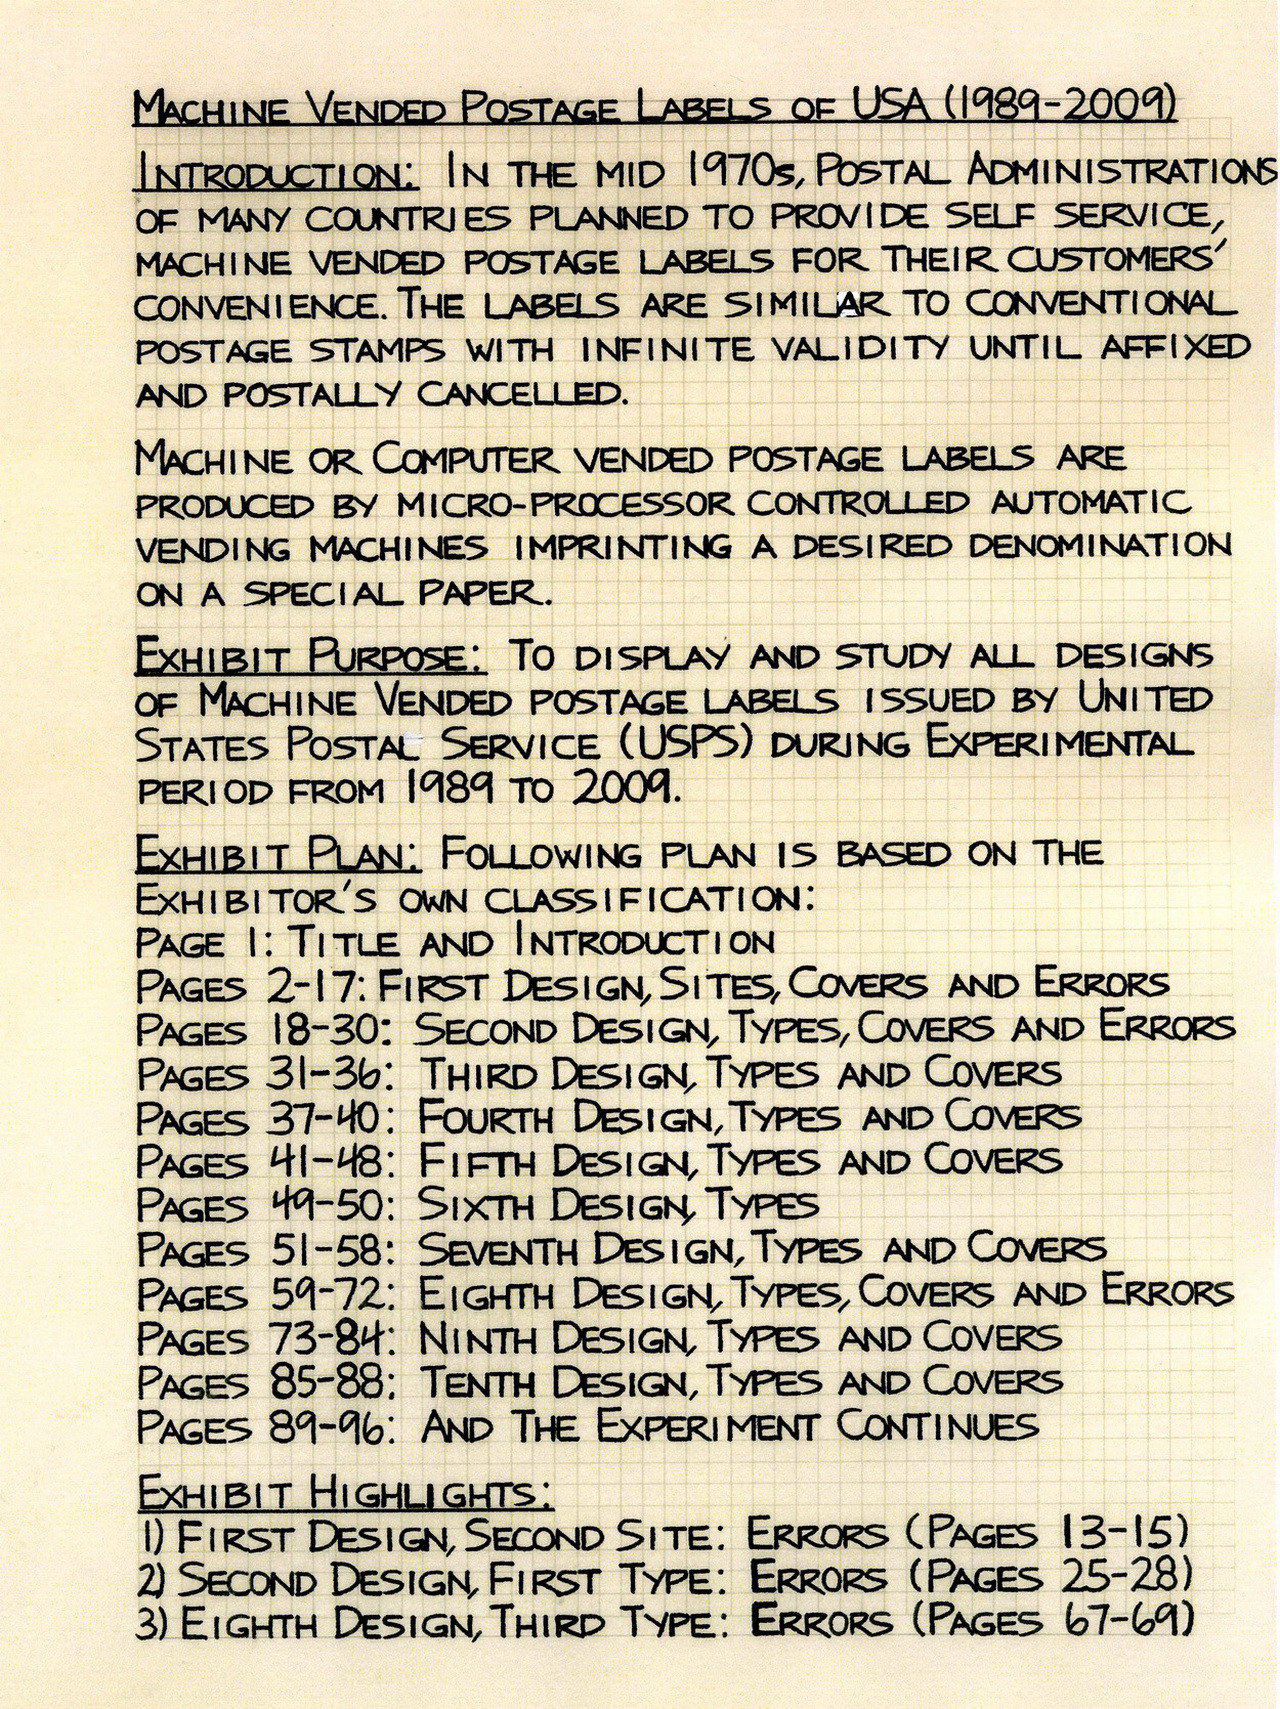 Machine Vended Postage Labels of USA (1989-2009)
Introduction: In the mid 1970s, Postal Administrations
of many countries planned to provide self service,
machine vended postage labels for their customers'
convenience. The labels are similar to conventional
postage stamps with infinite validity until affixed
and postally cancelled.
Machine or Computer vended postage labels are
produced by micro-processor controlled automatic
vending machines imprinting a desired denomination
on a special paper.
Exhibit Purpose: To display and study all designs
of Machine Vended postage labels issued by United
States Postal Service (USPS) during Experimental
period from 1989 to 2009.
Exhibit Plan: Following plan is based on the
Exhibitor's own classification:
Page 1: Title and Introduction
Pages 2-17: First Design, Sites, Covers and Errors
Pages 18-30: Second Design, Types, Covers and Errors
Pages 31-36: Third Design, Types and Covers
Pages 37-40: Fourth Design, Types and Covers
Pages 41-48: Fifth Design, Types and Covers
Pages 49-50: Sixth Design, Types
Pages 51-58: Seventh Design, Types and Covers
Pages 59-72: Eighth Design, Types, Covers and Errors
Pages 73-84: Ninth Design, Types and Covers
Pages 85-88: Tenth Design, Types and Covers
Pages 89-96: And The Experiment Continues
Exhibit Highlights:
1) First Design, Second Site: Errors (Pages 13-15)
2) Second Design, First Type: Errors (Pages 25-28)
3) Eighth Design, Third Type: Errors (Pages 67-69)